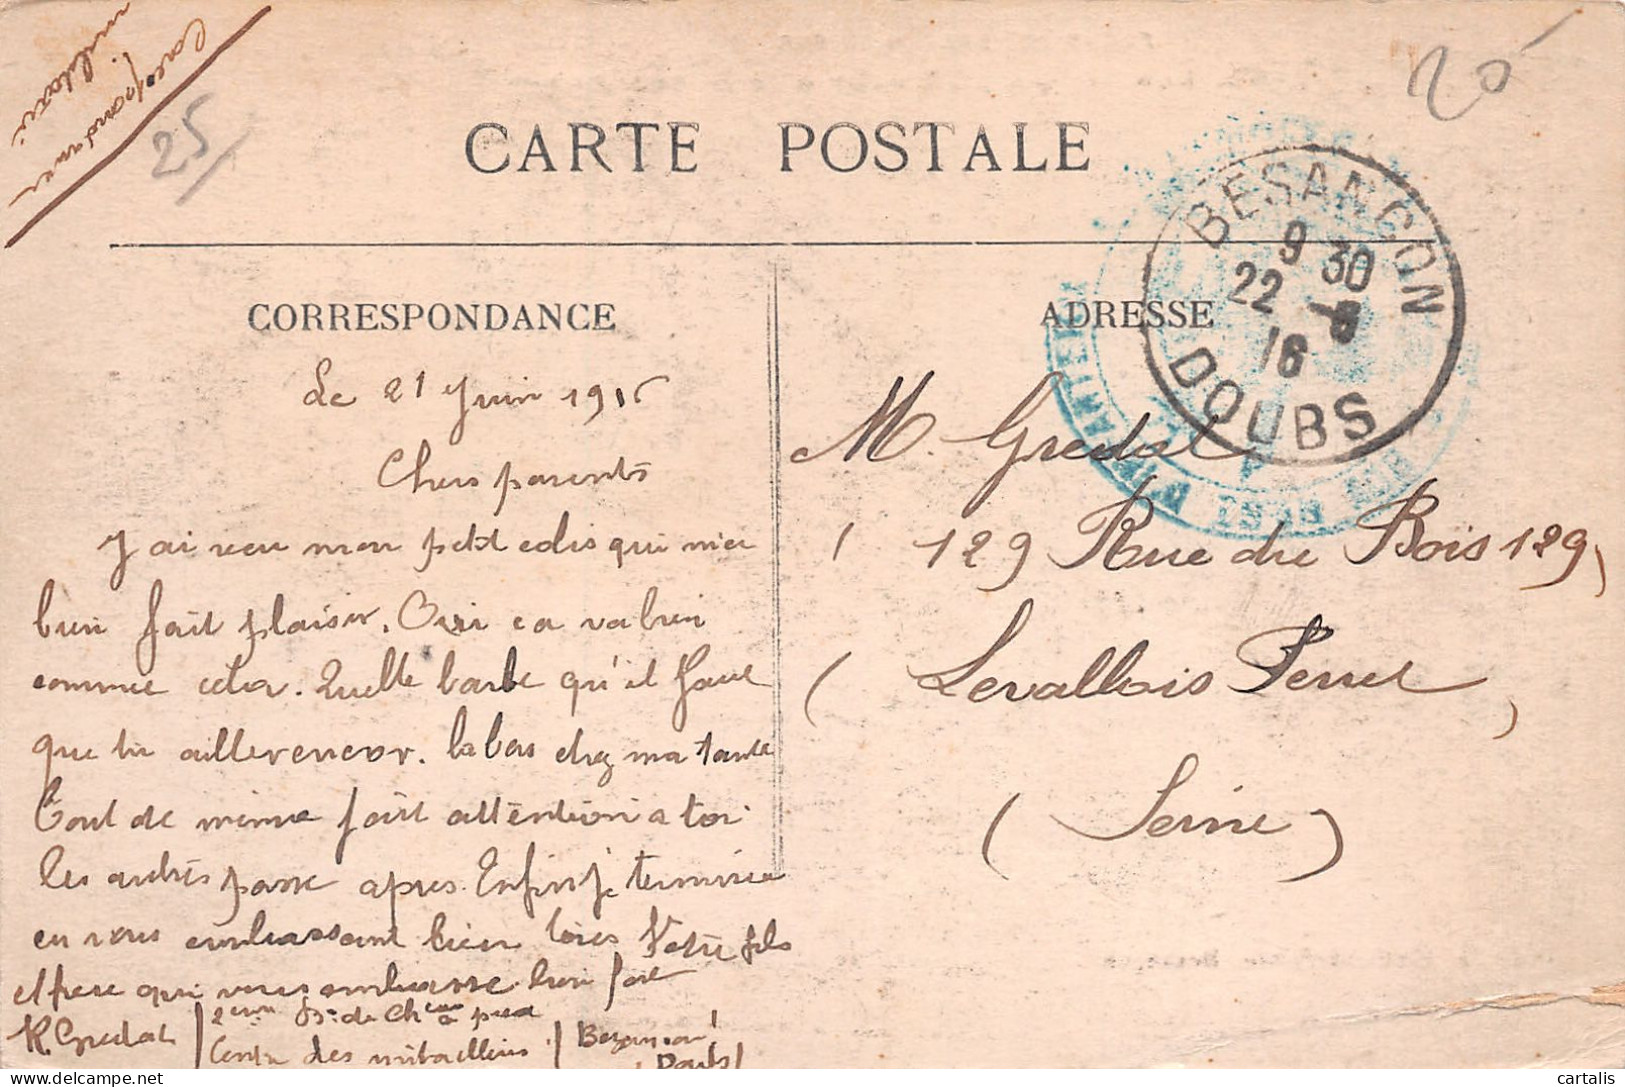 Correspondance
militaire
25
20
CARTE POSTALE
BESANCON
9 30
22 -6
16
DOUBS
CORRESPONDANCE
ADRESSE
Le 21 Juin 1916
Chers parents
J'ai reçu mon petit colis qui m'a
bien fait plaisir. Oui ca va bien
comme cela. Quelle barbe qu'il faut
que tu aille encor. la bas chez ma tante
Tout de même fait attention a toi
les autres passe apres. Enfin je termine
en vous embrassant bien tous Votre fils
et frere qui vous embrasse bien fort
R. Gredat
2eme B. de Cheurs a pied
Centre des mitrailleurs
Besançon
Doubs
M. Gredat
129 Rue du Bois 129
Levallois Perret
(Seine)
cartalis